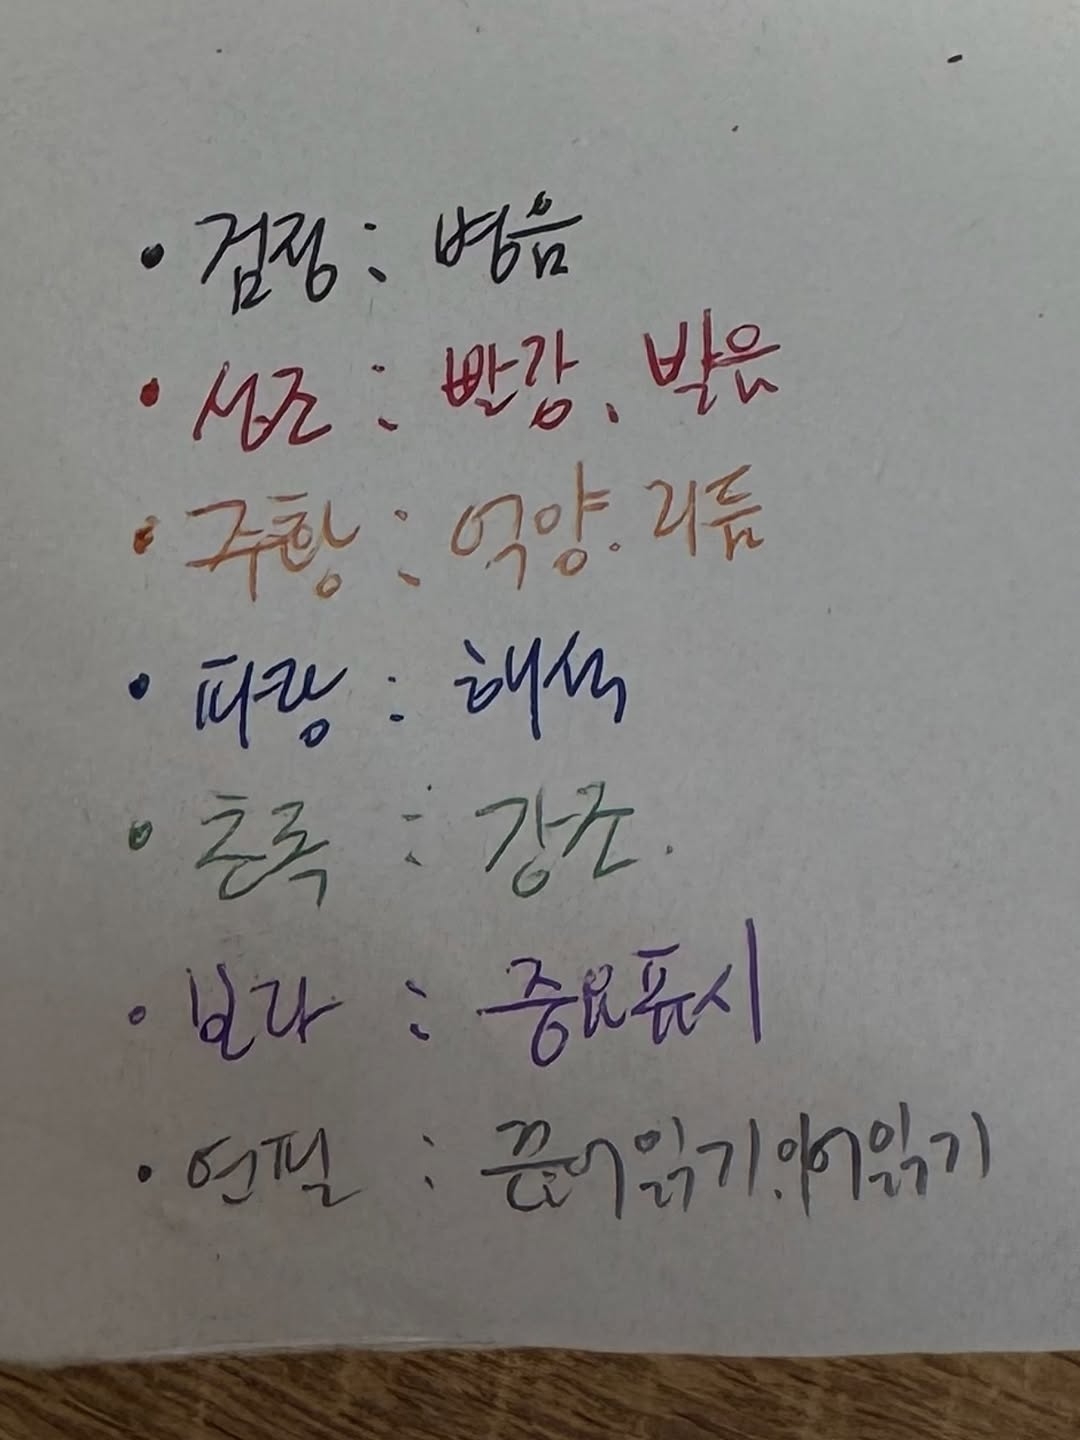 • 검정 : 병음
• 성조 : 빨강. 발음
• 주황 : 억양. 리듬
• 파랑 : 해석
• 초록 : 강조.
• 보라 : 중요표시
• 연필 : 끊어읽기.이어읽기